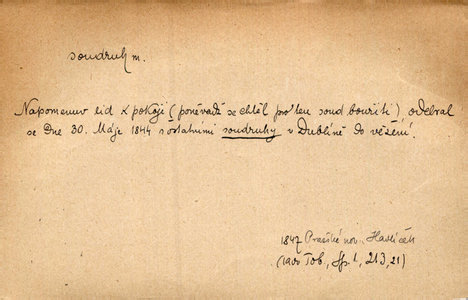 soudruh m.
Napomenuv lid k pokoji (poněvadž se chtěl pro ten soud bouřiti), odebral
se dne 30. Máje 1844 s ostatními soudruhy v Dublíně do vězení.
1847 Pražské nov. Havlíček
(1900 Tob., Sp. 1, 213, 21)